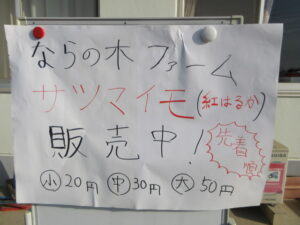 ならの木ファーム
サツマイモ(紅はるか)
販売中!
先着順
小20円 中30円 大50円